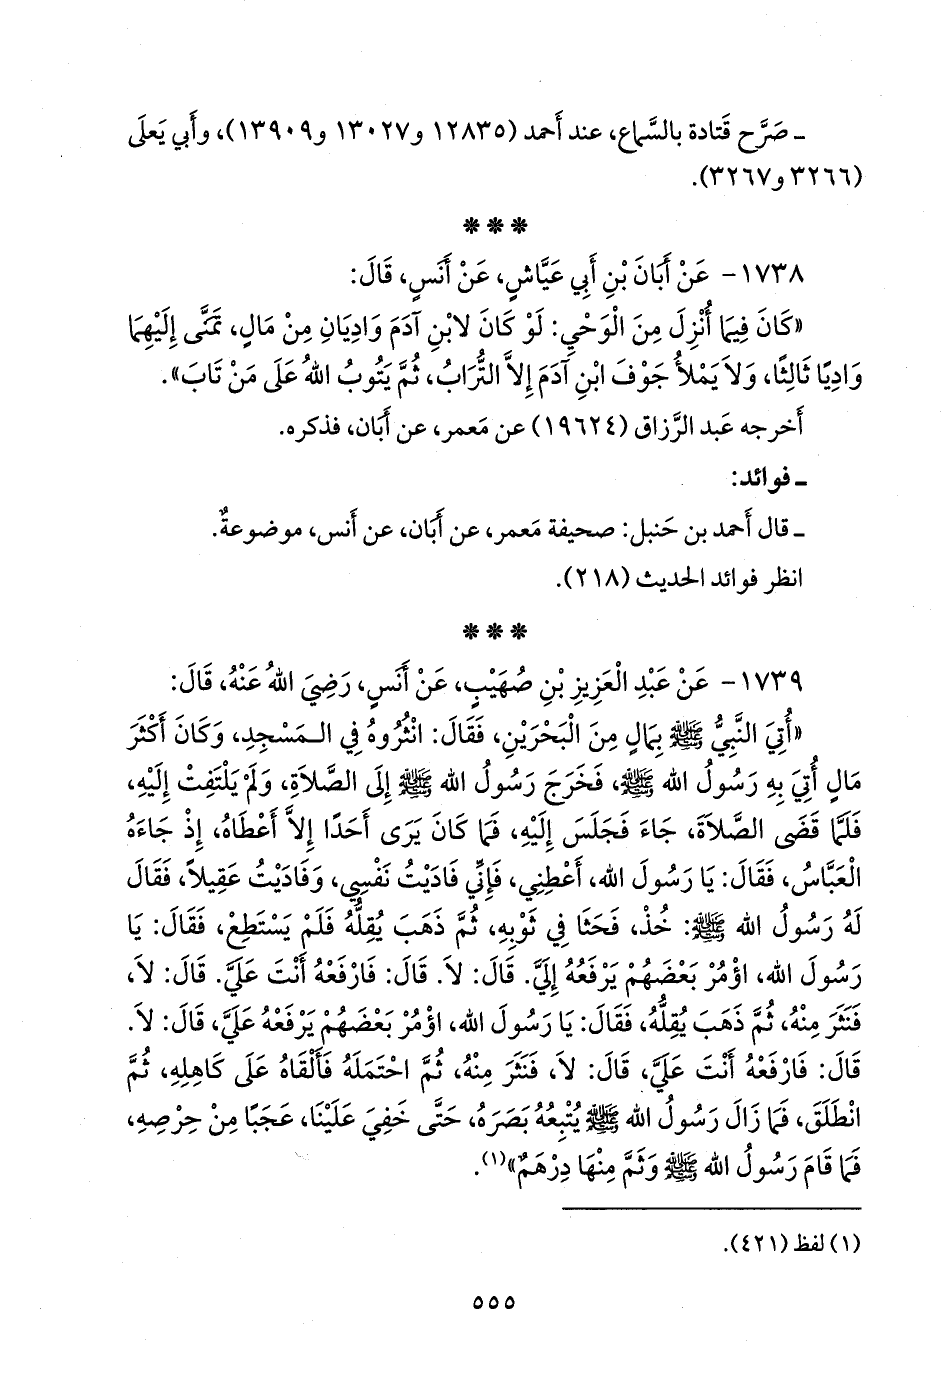 ـ صَرَّح قَتادة بالسَّماع، عند أَحمد (١٢٨٣٥ و١٣٠٢٧ و١٣٩٠٩)، وأَبي يَعلَى
(٣٢٦٦ و٣٢٦٧).
* * *
١٧٣٨- عَنْ أَبَانَ بْنِ أَبِي عَيَّاشٍ، عَنْ أَنَسٍ، قَالَ:
«كَانَ فِيمَا أُنْزِلَ مِنَ الْوَحْيِ: لَوْ كَانَ لابْنِ آدَمَ وَادِيَانِ مِنْ مَالٍ، تَمَنَّى إِلَيْهِمَا
وَادِيًا ثَالِثًا، وَلاَ يَمْلأُ جَوْفَ ابْنِ آدَمَ إِلاَّ التُّرَابُ، ثُمَّ يَتُوبُ اللهُ عَلَى مَنْ تَابَ».
أَخرجه عَبد الرَّزاق (١٩٦٢٤) عن مَعمر، عن أَبَان، فذكره.
ـ فوائد:
ـ قال أَحمد بن حَنبل: صحيفة مَعمر، عن أَبَان، عن أَنس، موضوعةٌ.
انظر فوائد الحديث (٢١٨).
* * *
١٧٣٩- عَنْ عَبْدِ الْعَزِيزِ بْنِ صُهَيْبٍ، عَنْ أَنَسٍ، رَضِيَ اللهُ عَنْهُ، قَالَ:
«أُتِيَ النَّبِيُّ ﷺ بِمَالٍ مِنَ الْبَحْرَيْنِ، فَقَالَ: انْثُرُوهُ فِي الـمَسْجِدِ، وَكَانَ أَكْثَرَ
مَالٍ أُتِيَ بِهِ رَسُولُ الله ﷺ، فَخَرَجَ رَسُولُ الله ﷺ إِلَى الصَّلاَةِ، وَلَمْ يَلْتَفِتْ إِلَيْهِ،
فَلَمَّا قَضَى الصَّلاَةَ، جَاءَ فَجَلَسَ إِلَيْهِ، فَمَا كَانَ يَرَى أَحَدًا إِلاَّ أَعْطَاهُ، إِذْ جَاءَهُ
الْعَبَّاسُ، فَقَالَ: يَا رَسُولَ الله، أَعْطِنِي، فَإِنِّي فَادَيْتُ نَفْسِي، وَفَادَيْتُ عَقِيلاً، فَقَالَ
لَهُ رَسُولُ الله ﷺ: خُذْ، فَحَثَا فِي ثَوْبِهِ، ثُمَّ ذَهَبَ يُقِلُّهُ فَلَمْ يَسْتَطِعْ، فَقَالَ: يَا
رَسُولَ الله، اؤْمُرْ بَعْضَهُمْ يَرْفَعُهُ إِلَيَّ. قَالَ: لاَ. قَالَ: فَارْفَعْهُ أَنْتَ عَلَيَّ. قَالَ: لاَ،
فَنَثَرَ مِنْهُ، ثُمَّ ذَهَبَ يُقِلُّهُ، فَقَالَ: يَا رَسُولَ الله، اؤْمُرْ بَعْضَهُمْ يَرْفَعْهُ عَلَيَّ، قَالَ: لاَ.
قَالَ: فَارْفَعْهُ أَنْتَ عَلَيَّ، قَالَ: لاَ، فَنَثَرَ مِنْهُ، ثُمَّ احْتَمَلَهُ فَأَلْقَاهُ عَلَى كَاهِلِهِ، ثُمَّ
انْطَلَقَ، فَمَا زَالَ رَسُولُ الله ﷺ يُتْبِعُهُ بَصَرَهُ، حَتَّى خَفِيَ عَلَيْنَا، عَجَبًا مِنْ حِرْصِهِ،
فَمَا قَامَ رَسُولُ الله ﷺ وَثَمَّ مِنْهَا دِرْهَمٌ»(١).
(١) لفظ (٤٢١).
٥٥٥